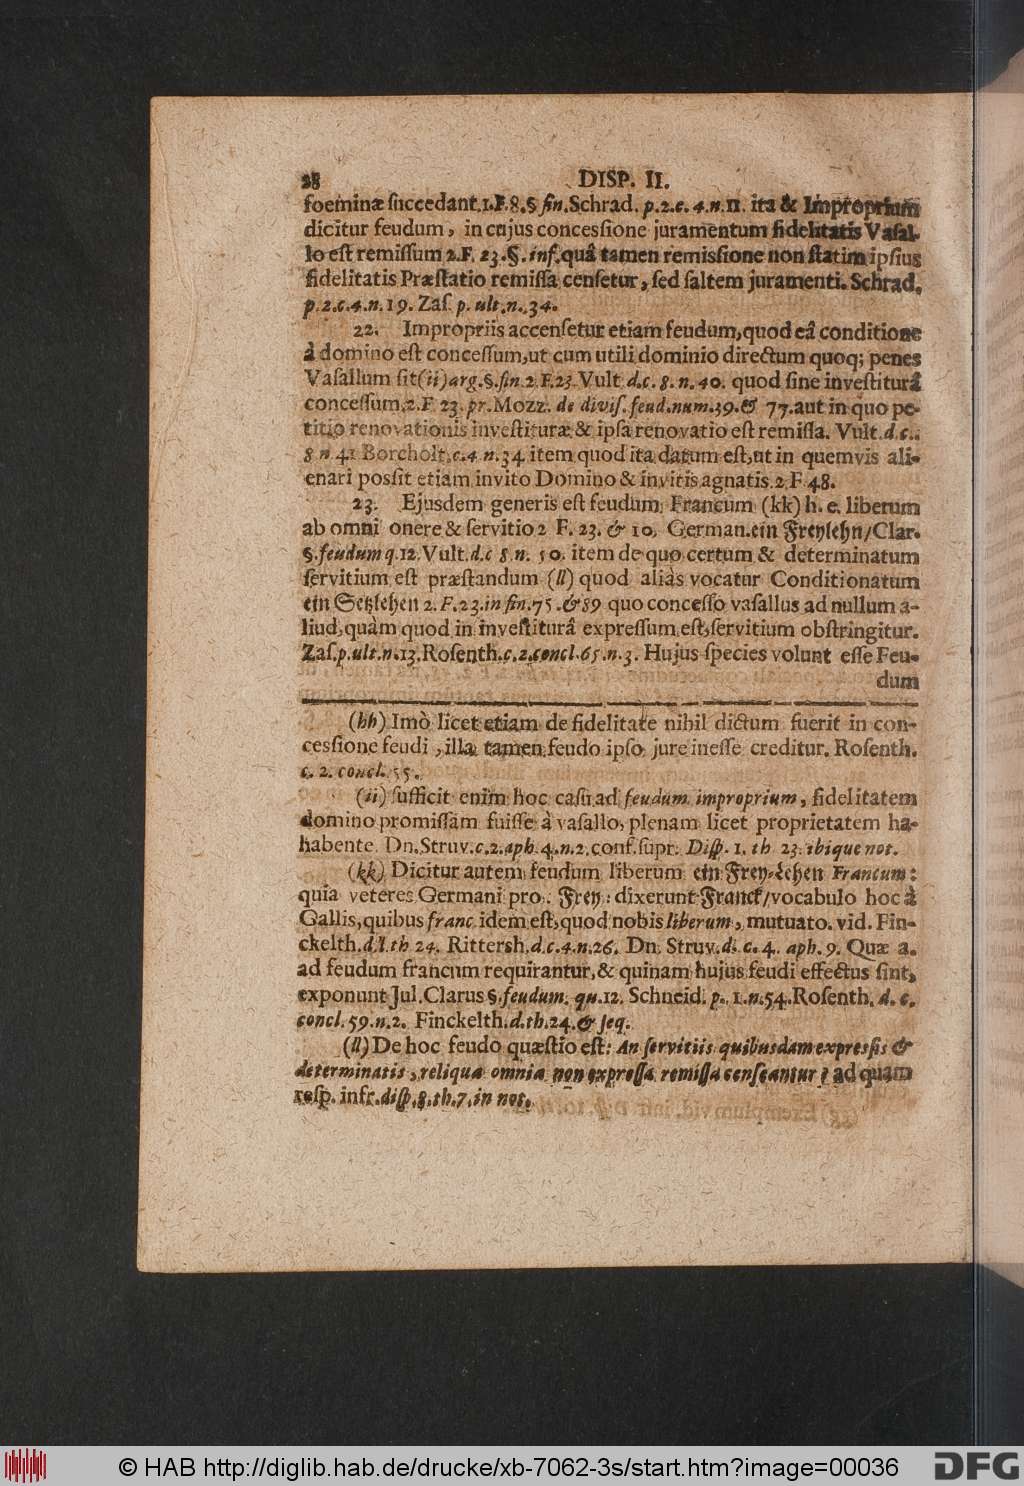 28 DISP. II.
foeminæ succedant. 1. F. 8. § fin. Schrad. p. 2. c. 4. n. 11. ita & Improprium
dicitur feudum, in cujus concessione juramentum fidelitatis Vasal-
lo est remissum 2. F. 23. §. inf. quâ tamen remissione non statim ipsius
fidelitatis Præstatio remissa censetur, sed saltem juramenti. Schrad.
p. 2. c. 4. n. 19. Zas. p. ult. n. 34.
22. Impropriis accensetur etiam feudum, quod eâ conditione
à domino est concessum, ut cum utili dominio directum quoq; penes
Vasallum sit (ii) arg. §. fin. 2. F. 23. Vult. d. c. 8. n. 40. quod sine investiturâ
concessum. 2. F. 23. pr. Mozz. de divis. feud. num. 39. & 77. aut in quo pe-
titio renovationis investituræ & ipsa renovatio est remissa. Vult. d. c.
8 n. 41 Borcholt. c. 4. n. 34 item quod ita datum est, ut in quemvis ali-
enari possit etiam invito Domino & invitis agnatis. 2. F. 48.
23. Ejusdem generis est feudum Francum (kk) h. e. liberum
ab omni onere & servitio 2 F. 23. & 10. German. ein Freylehn/ Clar.
§. feudum q. 12. Vult. d. c 8. n. 50. item de quo certum & determinatum
servitium est præstandum (ll) quod aliàs vocatur Conditionatum
ein Setzlehen 2. F. 23. in fin. 75. & 89 quo concesso vasallus ad nullum a-
liud, quàm quod in investiturâ expressum est, servitium obstringitur.
Zas. p. ult. n. 13. Rosenth. c. 2. concl. 65. n. 3. Hujus species volunt esse Feu-
dum
(hh) Imò licet etiam de fidelitate nihil dictum fuerit in con-
cessione feudi, illa tamen feudo ipso jure inesse creditur. Rosenth.
c. 2. concl. 55.
(ii) sufficit enim hoc casu ad feudum improprium, fidelitatem
domino promissam fuisse à vasallo, plenam licet proprietatem ha-
habente. Dn. Struv. c. 2. aph. 4. n. 2. conf. supr. Disp. 1. th 23. ibique not.
(kk) Dicitur autem feudum liberum ein Frey-Lehen Francum:
quia veteres Germani pro: Frey: dixerunt Franck/ vocabulo hoc à
Gallis, quibus franc idem est, quod nobis liberum, mutuato. vid. Fin-
ckelth. d. l. th 24. Rittersh. d. c. 4. n. 26. Dn. Struv. d. c. 4. aph. 9. Quæ a.
ad feudum francum requirantur, & quinam hujus feudi effectus sint,
exponunt Jul. Clarus §. feudum. qu. 12. Schneid. p. 1. n. 54. Rosenth. d. c.
concl. 59. n. 2. Finckelth. d. th. 24. & seq.
(ll) De hoc feudo quæstio est: An servitiis quibusdam expressis &
determinatis, reliqua omnia non expressa remissa censeantur? ad quam
resp. infr. disp. 8. th. 7. in not.
© HAB http://diglib.hab.de/drucke/xb-7062-3s/start.htm?image=00036
DFG